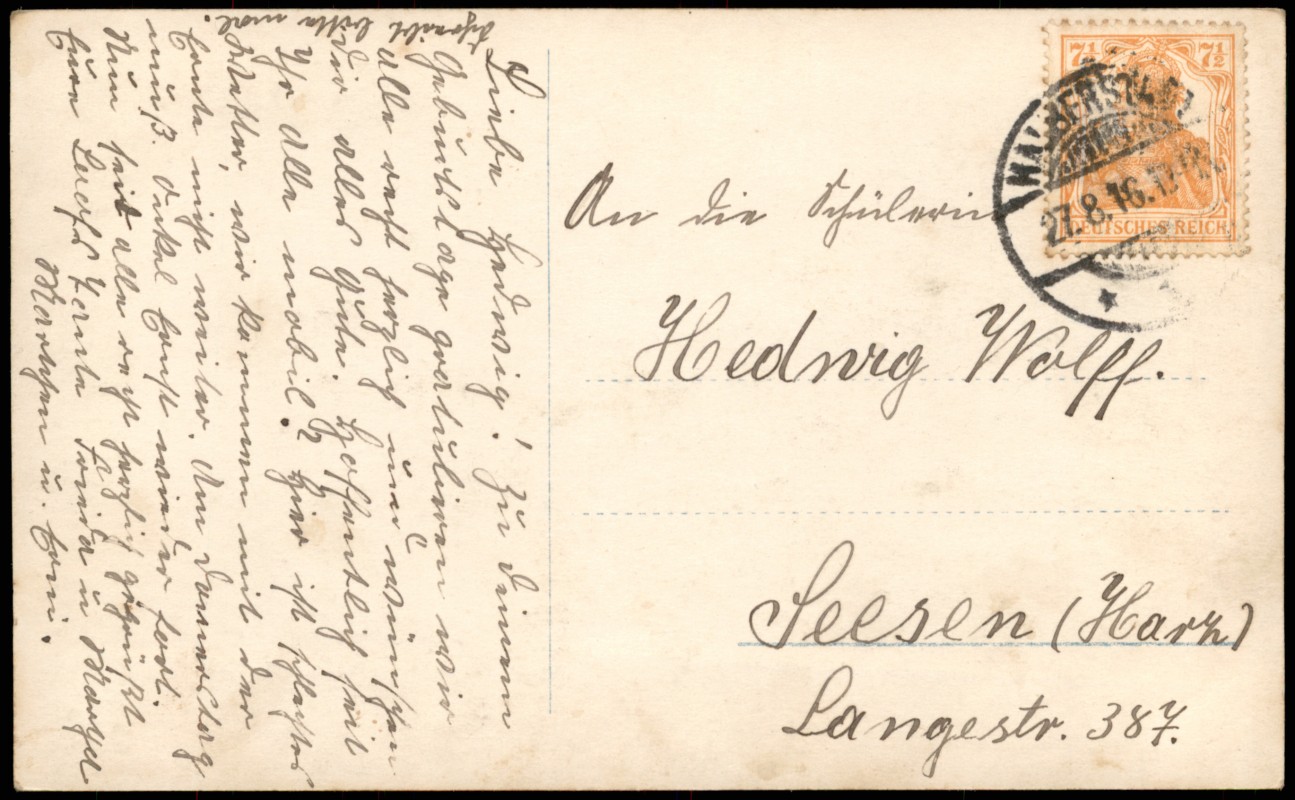 Liebe Hedwig! Zu deinem
Geburtstage gratulieren wir
alle recht herzlich und wünschen
dir alles Gute. Hoffentlich seit
Ihr alle mobil? Hier ist schlechtes
Wetter, wir kammen mit der
Ernte nicht weiter. Am Donnerstag
muß Onkel Ernst wieder fort.
Nun seid alle recht herzlich gegrüßt
Eure Tante Frieda u
Marthchen u. Erni.
schreibt bitte mal.
An die Schülerin
Hedwig Wolff.
Seesen (Harz)
Langestr. 387.
7½ 7½
DEUTSCHES REICH
HALBERSTADT
27.8.16.